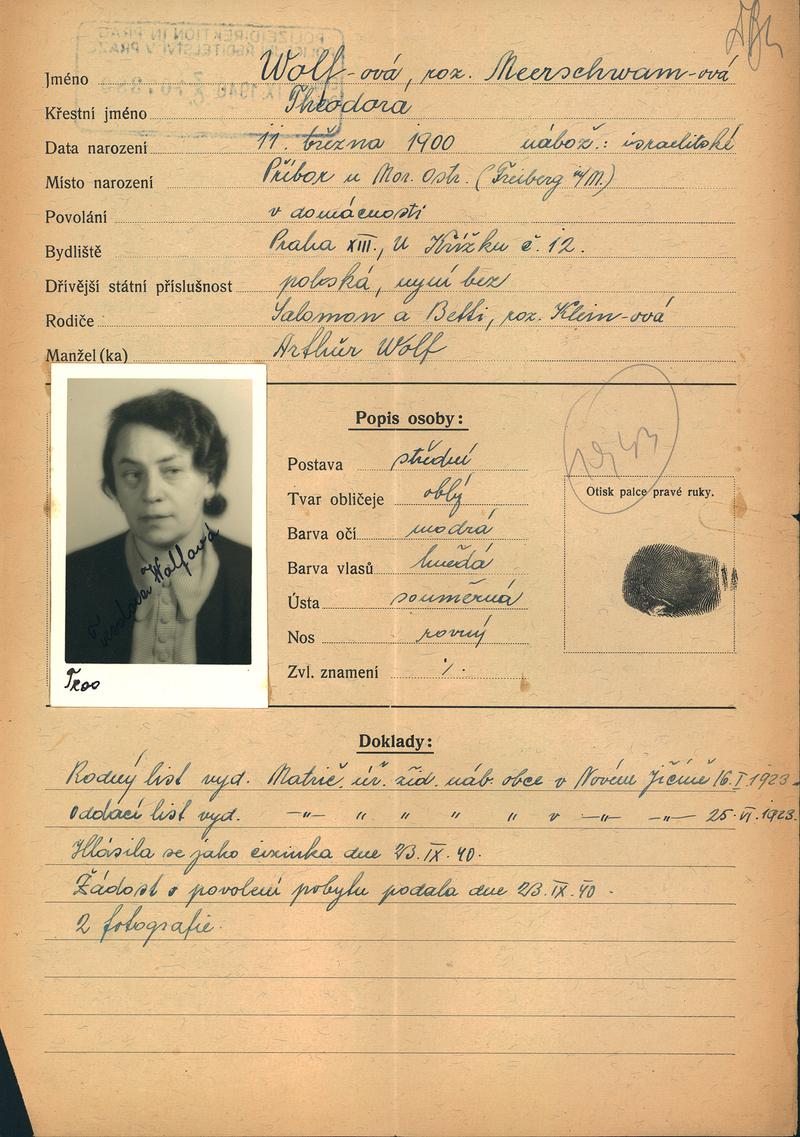 POLIZEIDIREKTION IN PRAG
POLICEJNÍ ŘEDITELSTVÍ V PRAZE
Jméno Wolf-ová, roz. Meerschwam-ová
Křestní jméno Theodora
Data narození 11. března 1900 nábož.: israelitské
Místo narození Příbor u Mor. Ostr. (Freiberg i/M.)
Povolání v domácnosti
Bydliště Praha XIII., U Křížku č. 12.
Dřívější státní příslušnost polská, nyní bez
Rodiče Salomon a Betti, roz. Klein-ová
Manžel (ka) Arthur Wolf
Popis osoby:
Postava střední
Tvar obličeje oblý
Barva očí modrá
Barva vlasů hnědá
Ústa souměrná
Nos rovný
Zvl. znamení ·/·
Otisk palce pravé ruky.
Teodora Wolfová
Doklady:
Rodný list vyd. Matrič. úř. žid. náb. obce v Novém Jičíně 16.I.1923.
Oddací list vyd. -"- " " " " v -"- -"- 25.VI.1923.
Hlásila se jako cizinka dne 23.IX.40.
Žádost o povolení pobytu podala dne 23.IX.40.
2 fotografie.